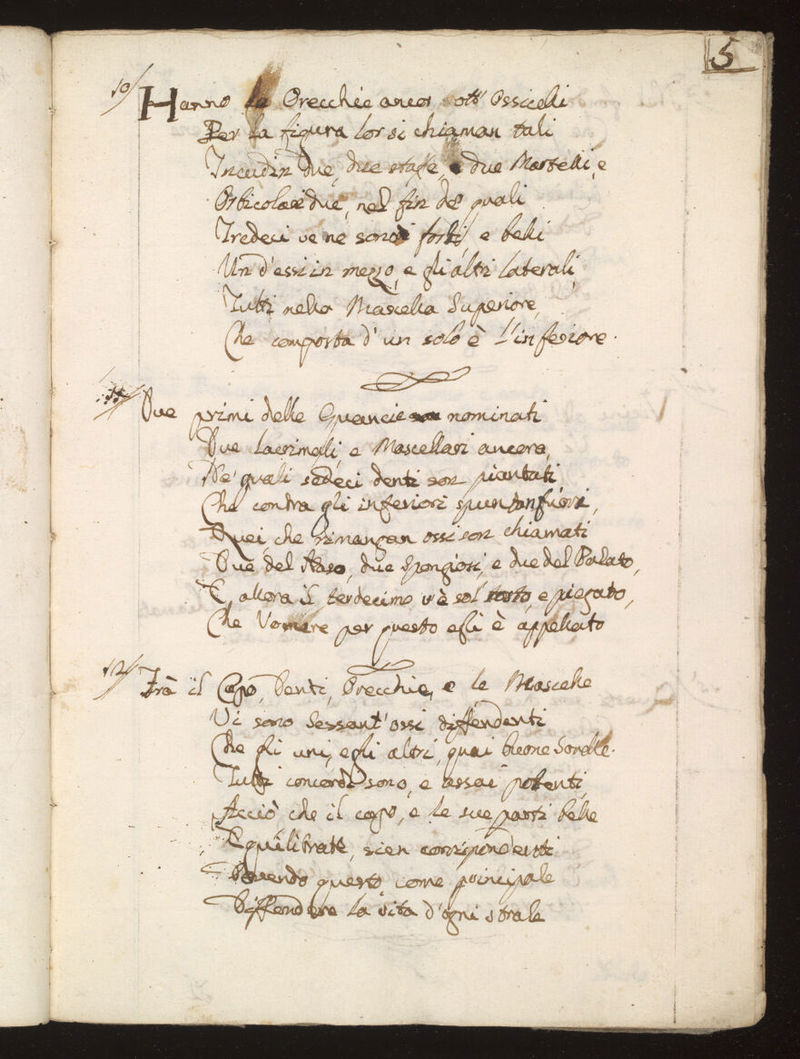 5
10/ Hanno le Orecchie ancor ott' Ossicelli
Per la figura lor si chiaman tali
Incudin due, due staffe, e due Martelli, e
Orbicolari due, nel fin de' quali
Tredeci ve ne sono forti, e belli
Un d'essi in mezzo, e gli altri laterali,
Tutti nella Mascella Superiore,
Che composta d'un solo è l'inferiore.
11/ Due primi delle Guancie nominati
Due lacrimali, e Mascellari ancora,
Ne' quali sedeci denti son piantati,
Che contra gli inferiori spuntan fuori,
Quei, che rimangan ossi son chiamati
Due del Naso, due Spongiosi, e due del Palato,
E allora il terdecimo v'è sol torto, e piegato,
Che Vomere per questo egli è appellato
12/ Frà il Capo, Denti, Orecchie, e le Mascelle
Vi sono Sessant'ossi diffendenti
Che gli uni, e gli altri, quai buone Sorelle.
Tutti concordi sono, e assai potenti,
Acciò che il capo, e le sue parti belle
Equilibrate, sien corrispondenti
Dovendo questo, come principale
Diffendere la vita d'ogni strale